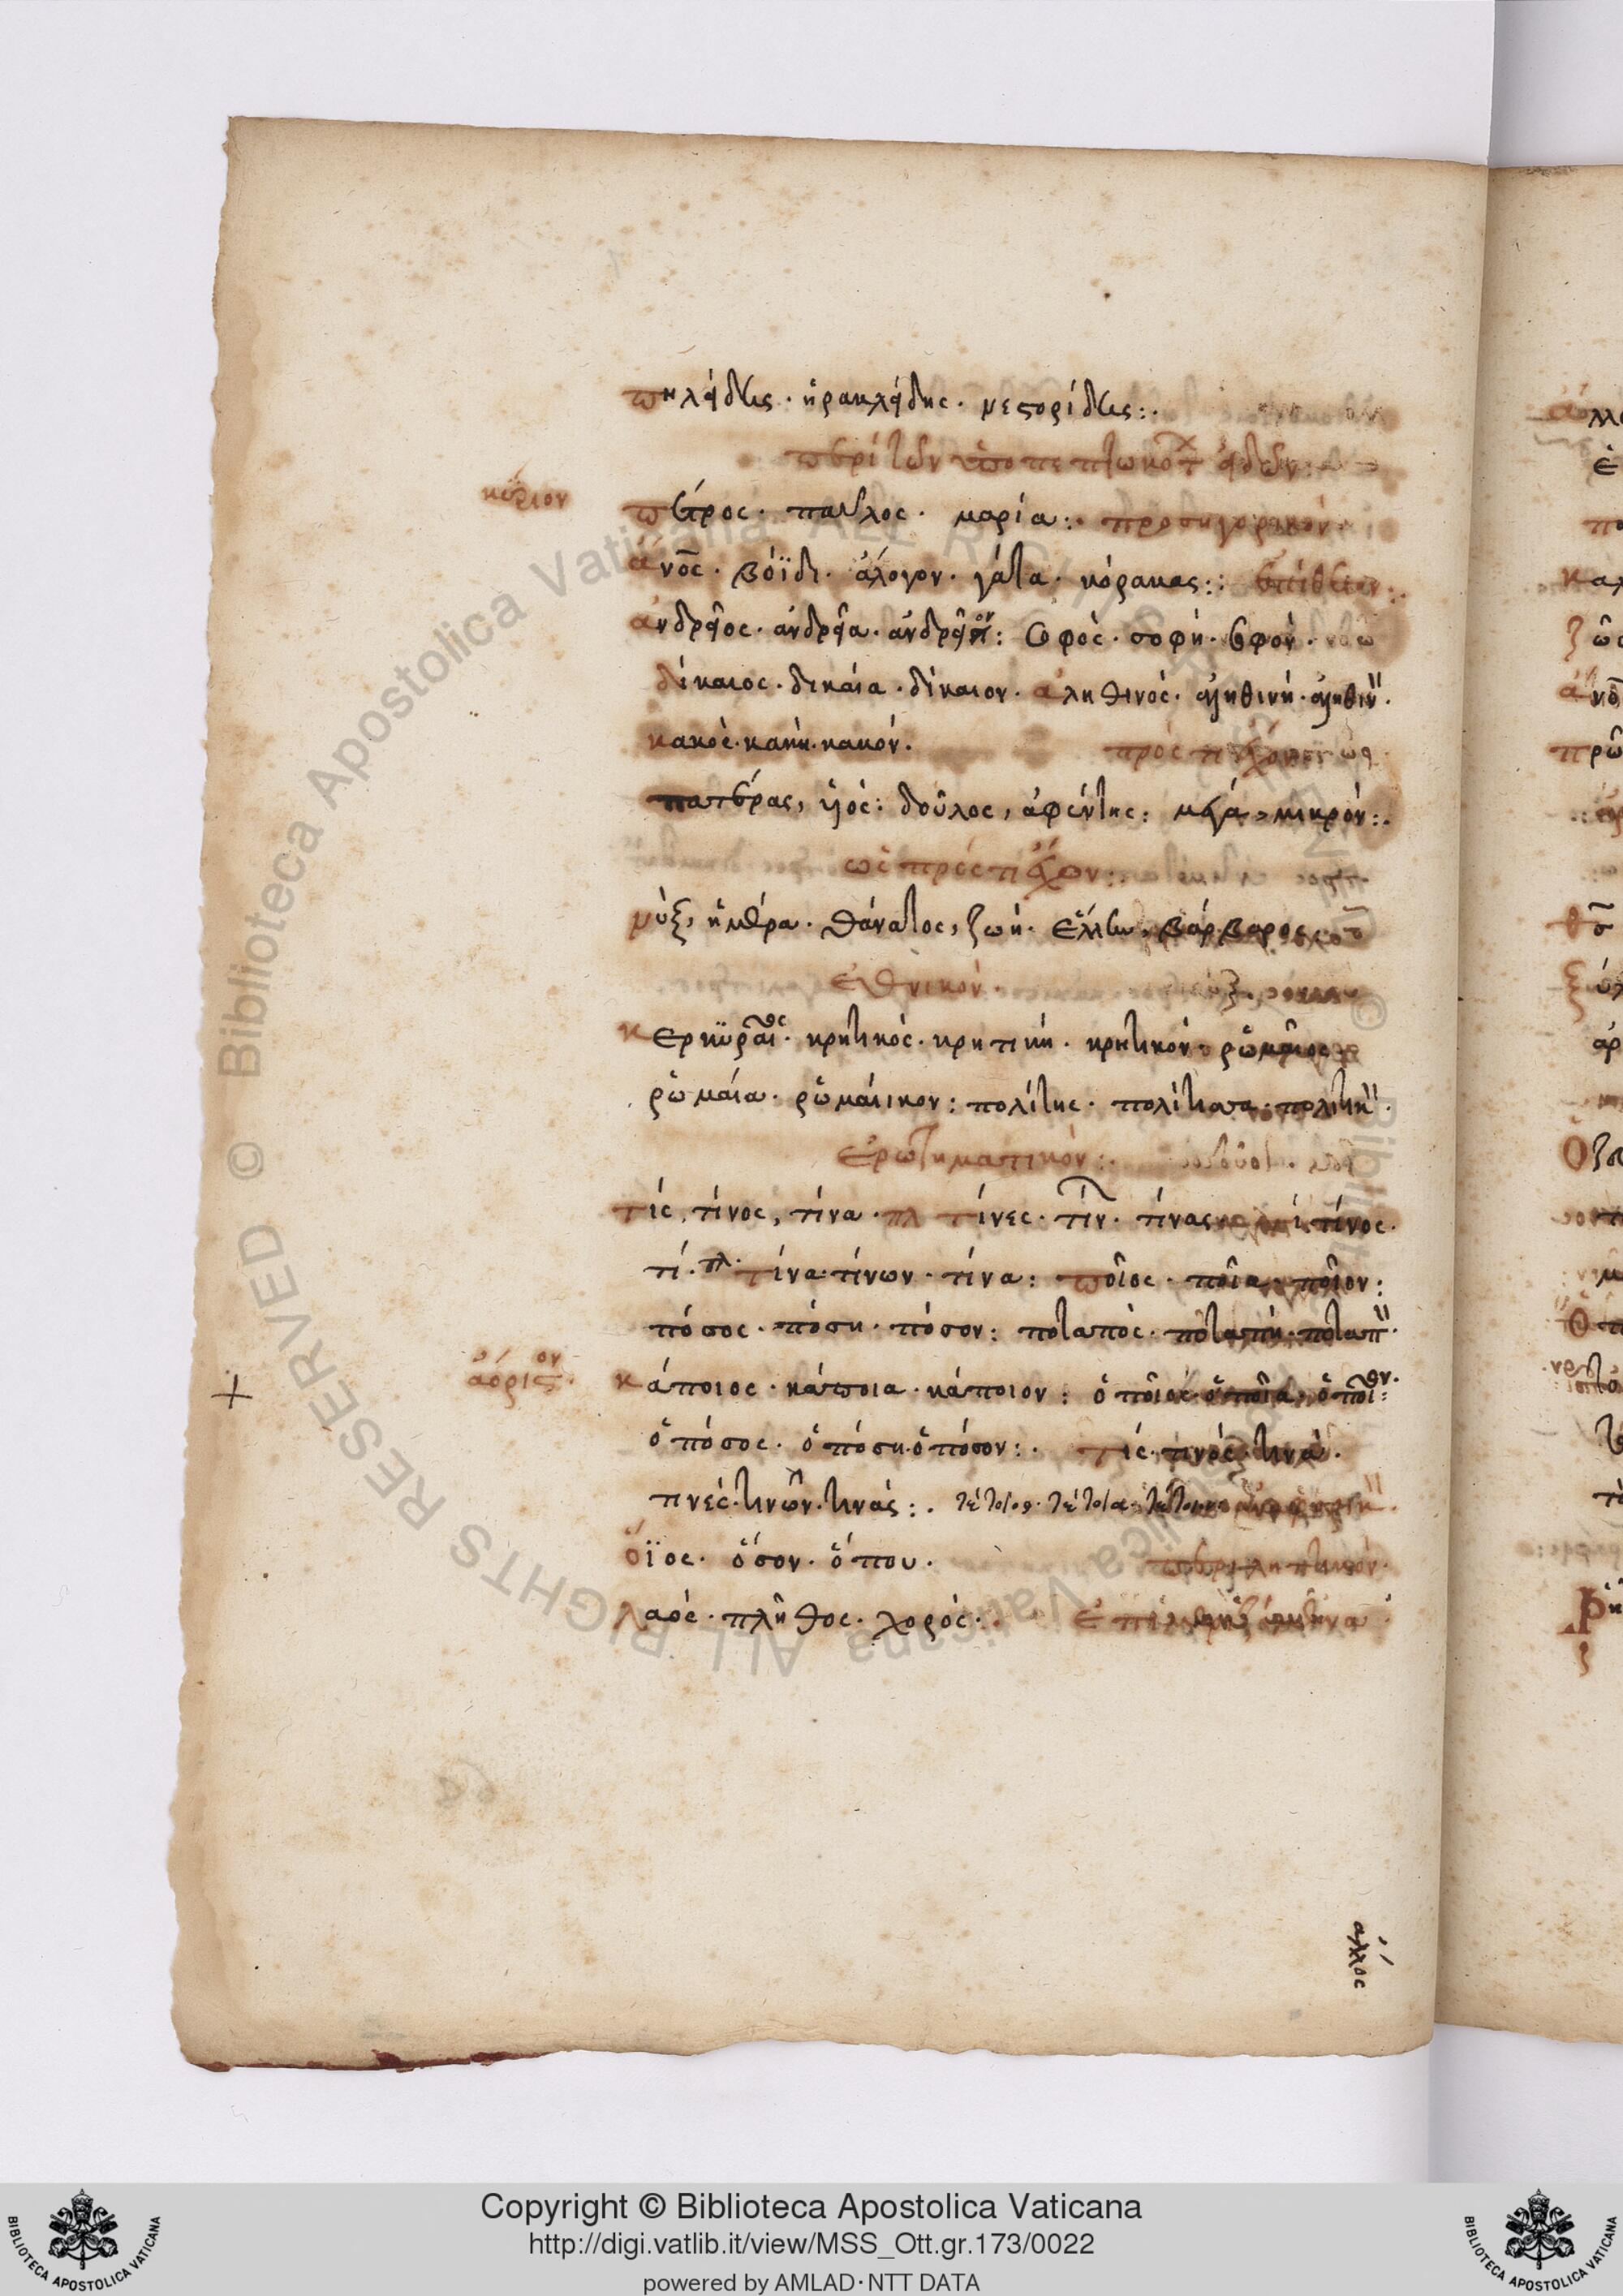 πηλείδης · ἡρακλείδης · νεστορίδης :·
περὶ τῶν ὑποπεπτωκότ εἰδῶν :
κύριον
πέτρος · παῦλος · μαρία :· προσηγορικόν
ἄνος · βόϊδι · ἄλογον · γάτα · κόρακας :· ἐπίθετον :·
ἀνδρεῖος · ἀνδρεῖα · ἀνδρεῖον : σοφὸς · σοφὴ · σοφὸν ·
δίκαιος · δικαία · δίκαιον · ἀληθινὸς · ἀληθινὴ · ἀληθιν ·
κακὸς · κακὴ · κακόν · πρὸς τι ἔχον
πατέρας, ἡὸς : δοῦλος, ἀφέντης : μέγα, μικρόν :·
ὡς πρὸς τι ἔχον :·
νὺξ, ἡμέρα · θάνατος, ζωή · ἕλλην, βάρβαρος
ἐθνικόν ·
κερκυραῖος · κρητικὸς · κρητικὴ · κρητικόν · ῥωμαῖος
ῥωμαία · ῥωμαίικον : πολίτης · πολίτισσα · πολιτικ ·
ἐρωτηματικόν :·
τίς, τίνος, τίνα · πλ τίνες · τίν · τίνας τί τίνος ·
τί · πλ · τίνα · τίνων · τίνα : ποῖος · ποῖα · ποῖον :
πόσος · πόση · πόσον : ποταπὸς · ποταπὴ · ποταπ ·
ἀόριστον ·
κάποιος · κάποια · κάποιον : ὁποῖος · ὁποῖα · ὁποῖον :
ὁπόσος · ὁπόση · ὁπόσον :· τίς · τινός · τινὰ ·
τινές · τινῶν · τινάς :· τέτοιος · τέτοια · τέτοιον
ὅϊος · ὅσον · ὅπου · περιληπτικόν ·
λαὸς · πλῆθος · χορός :·
ἄλλος
Copyright © Biblioteca Apostolica Vaticana
http://digi.vatlib.it/view/MSS_Ott.gr.173/0022
powered by AMLAD·NTT DATA